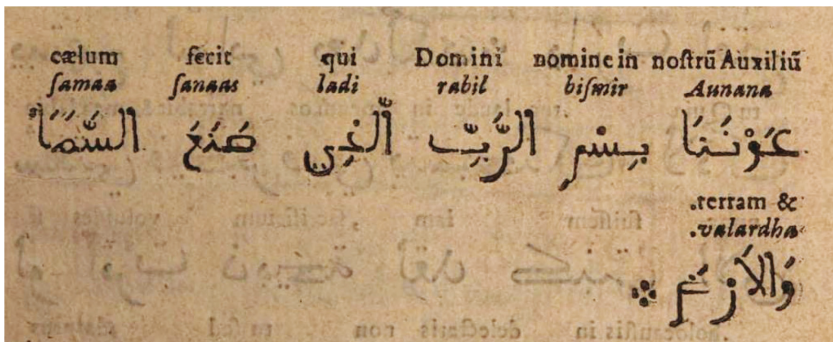 cælum fecit qui Domini nomine in noſtrũ Auxiliũ
ſamaa ſanaas ladi rabil biſmir Aunana
عَوْنَنَا بِسْمِ الرَّبِّ الَّذِي صَنَعَ السَّمَاَ
.terram &
.valardha
وَالاَرْضَ ⁘